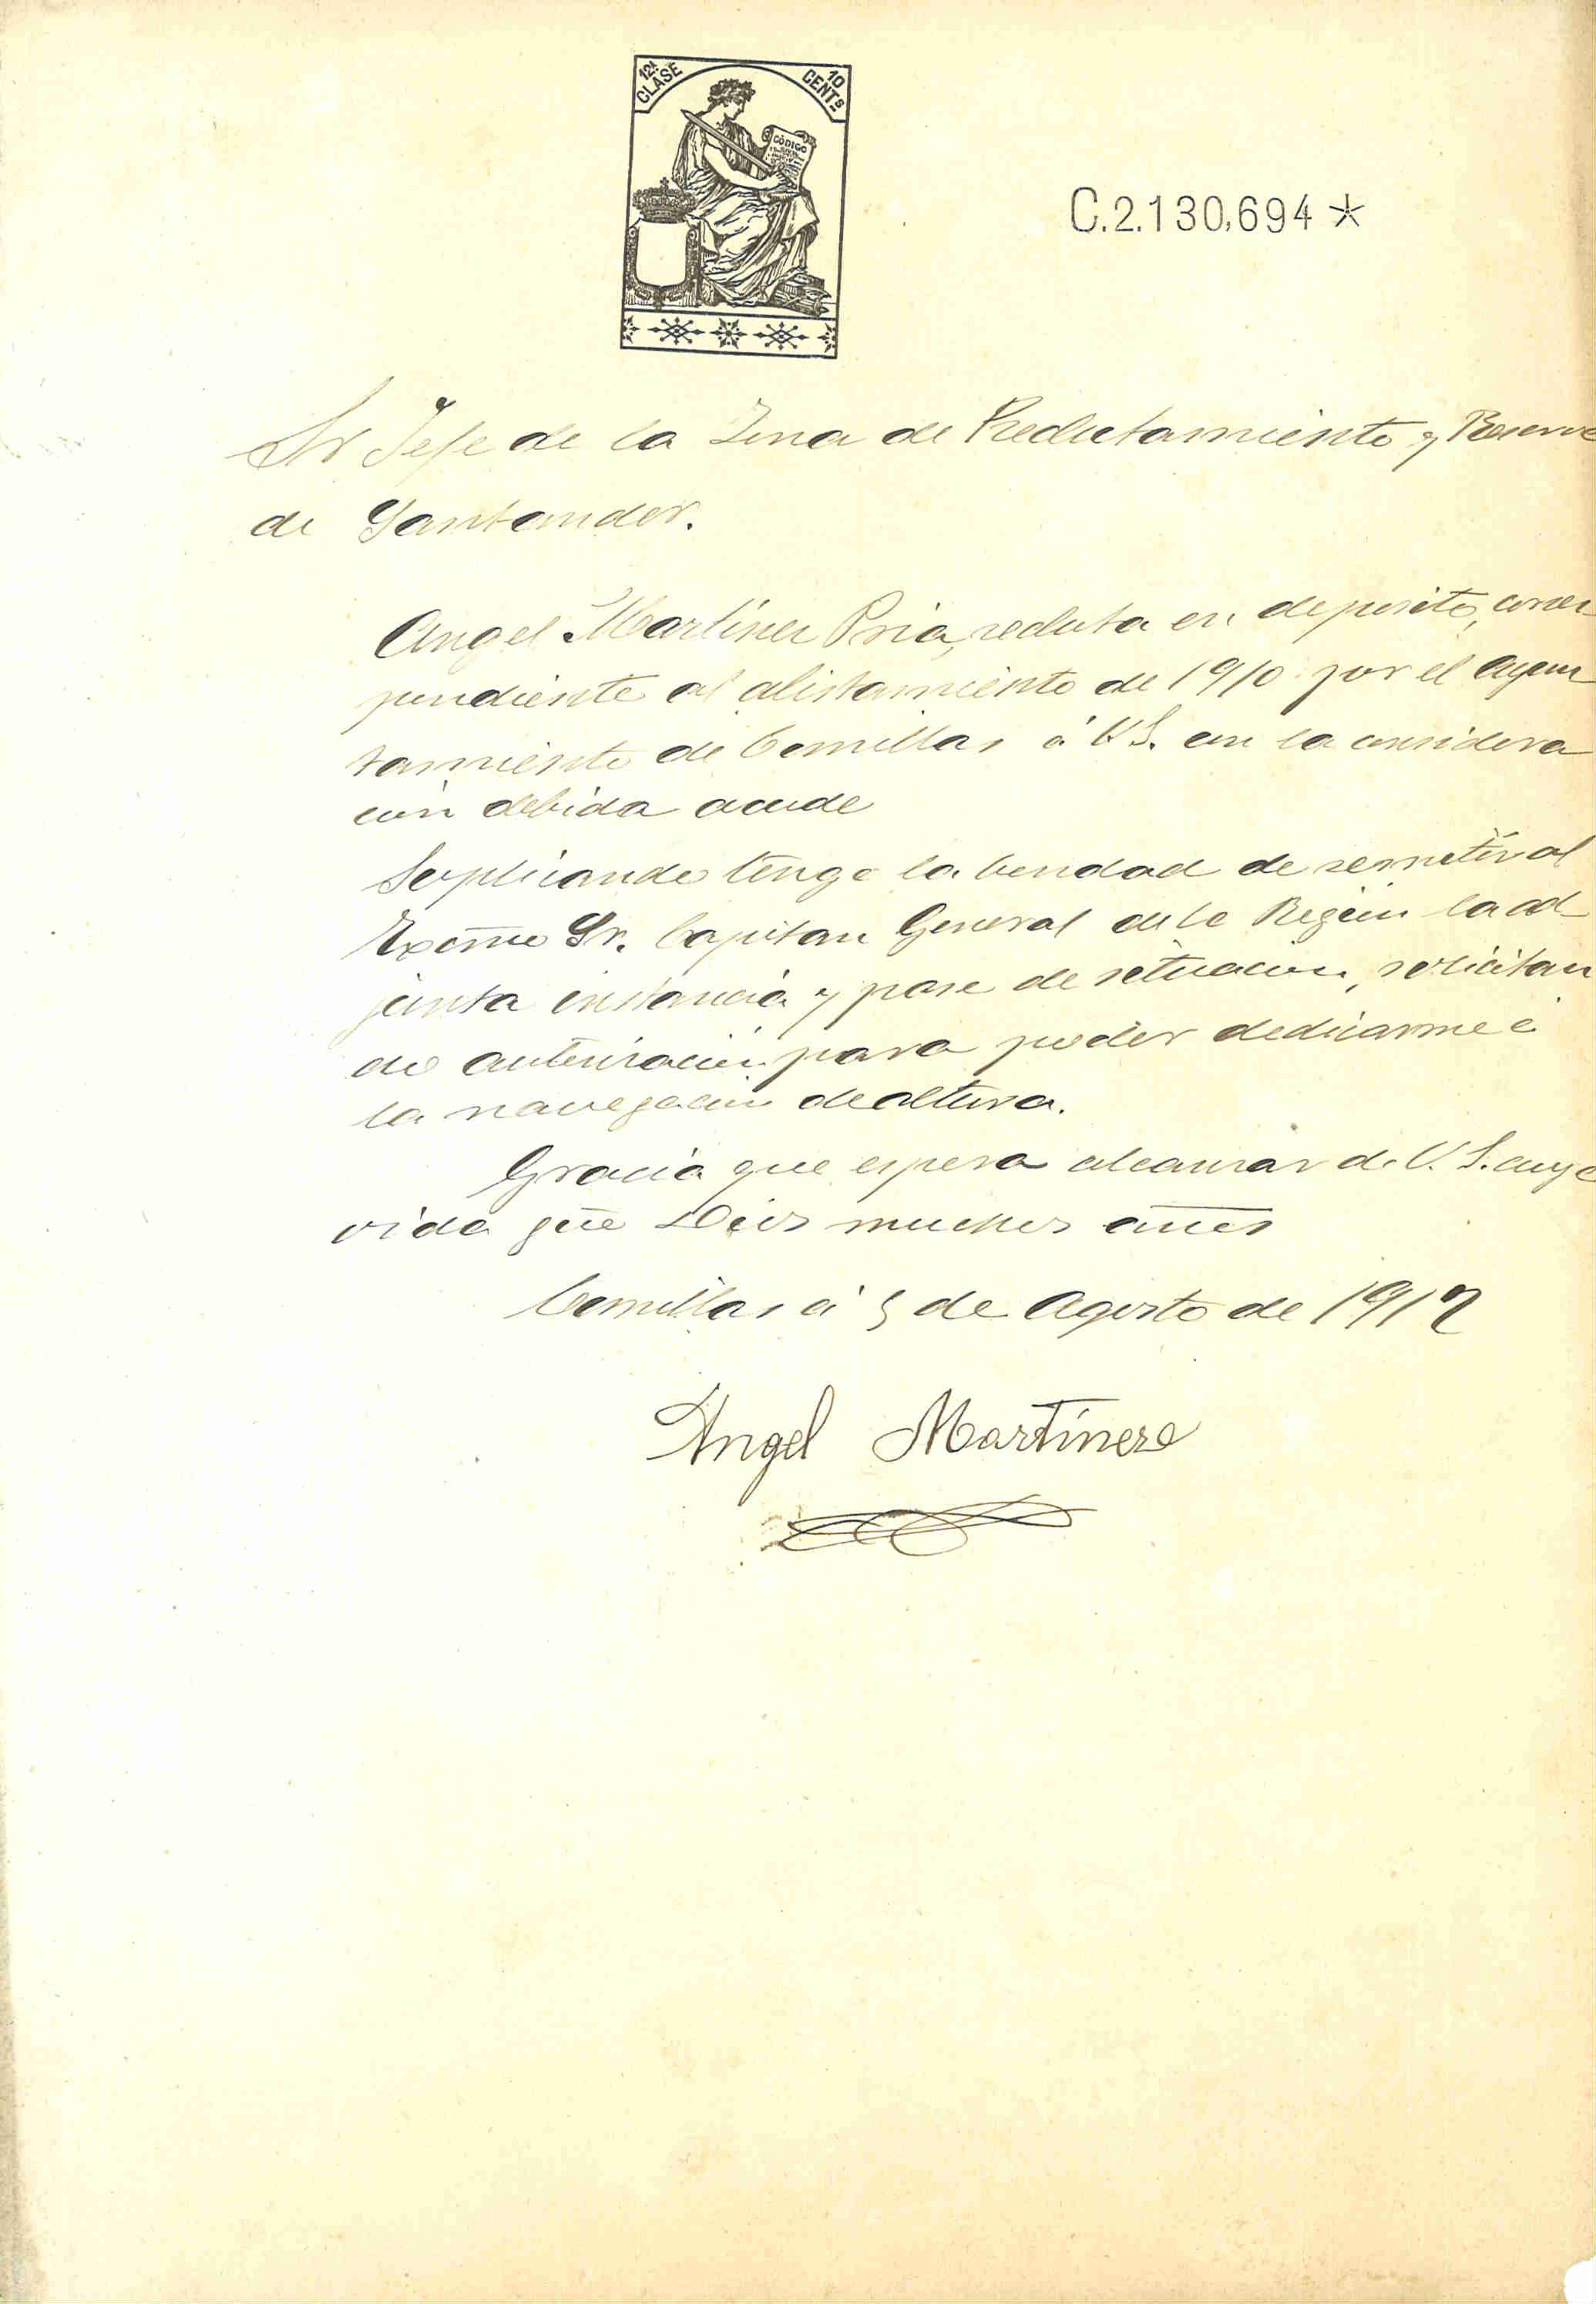 12ª CLASE
10 CENTs
CÓDIGO
C.2.130,694 *
Sr Jefe de la Zona de Reclutamiento y Reserva
de Santander.
Angel Martínez Pría, recluta en deposito, corres
pondiente al alistamiento de 1910 por el Ayun
tamiento de Comillas á V.S. con la considera
ción debida acude
Suplicando tenga la bondad de remitir al
Excmo Sr. Capitan General de la Región la ad
junta instancia y pase de situacion, solicitan
do autorización para poder dedicarme á
la navegación de altura.
Gracia que espera alcanzar de V.S. cuya
vida gue Dios muchos años
Comillas á 5 de Agosto de 1912
Angel Martínez